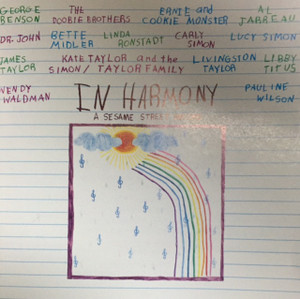 GEORGE BENSON THE DOOBIE BROTHERS ERNIE and COOKIE MONSTER AL JARREAU
DR. JOHN BETTE MIDLER LINDA RONSTADT CARLY SIMON LUCY SIMON
JAMES TAYLOR KATE TAYLOR and the SIMON/TAYLOR FAMILY LIVINGSTON TAYLOR LIBBY TITUS
WENDY WALDMAN IN HARMONY PAULINE WILSON
A SESAME STREET